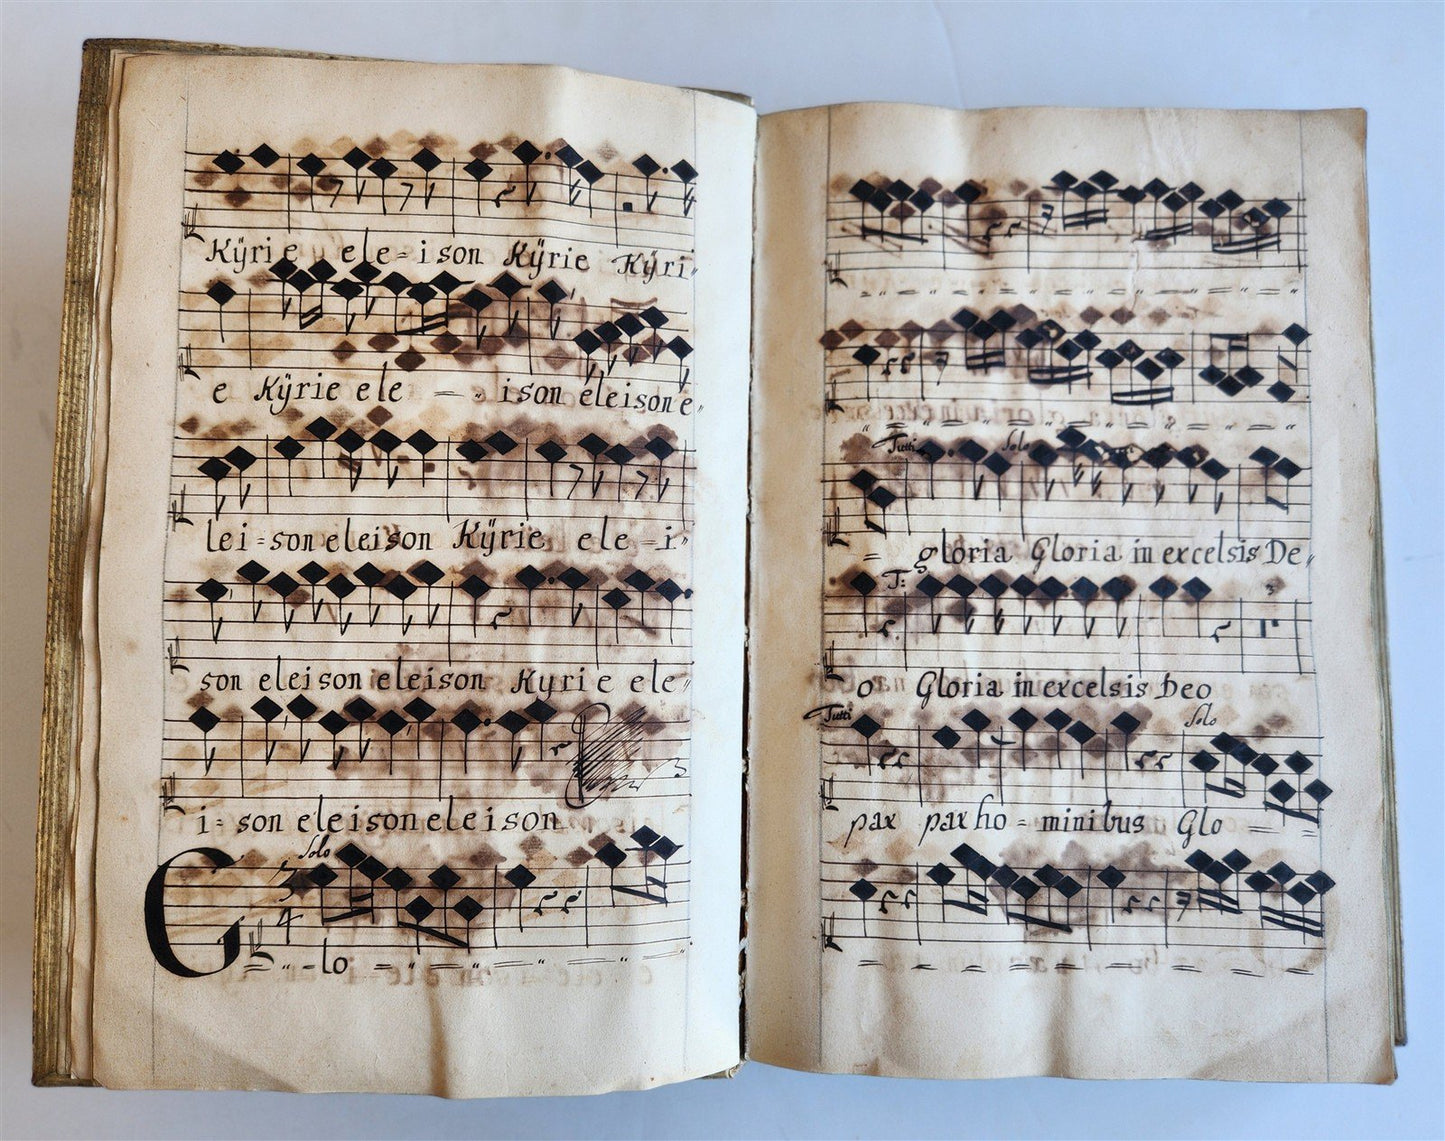 Kÿrie ele=ison Kÿrie Kÿri"
e Kÿrie ele — ison eleison e"
lei=son eleison Kÿrie ele-i"
son eleison eleison Kyrie ele"
3
i=son eleison eleison
Solo
3
4
G -lo
Tutti Solo
= gloria Gloria in excelsis De"
T: 3
o Gloria in excelsis Deo
Tutti Solo
pax pax ho=minibus Glo =